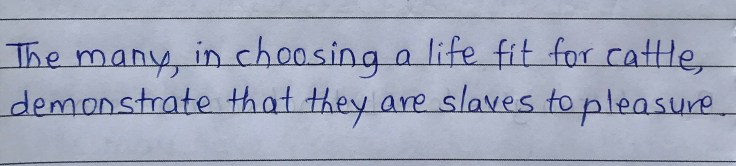 The many, in choosing a life fit for cattle,
demonstrate that they are slaves to pleasure.